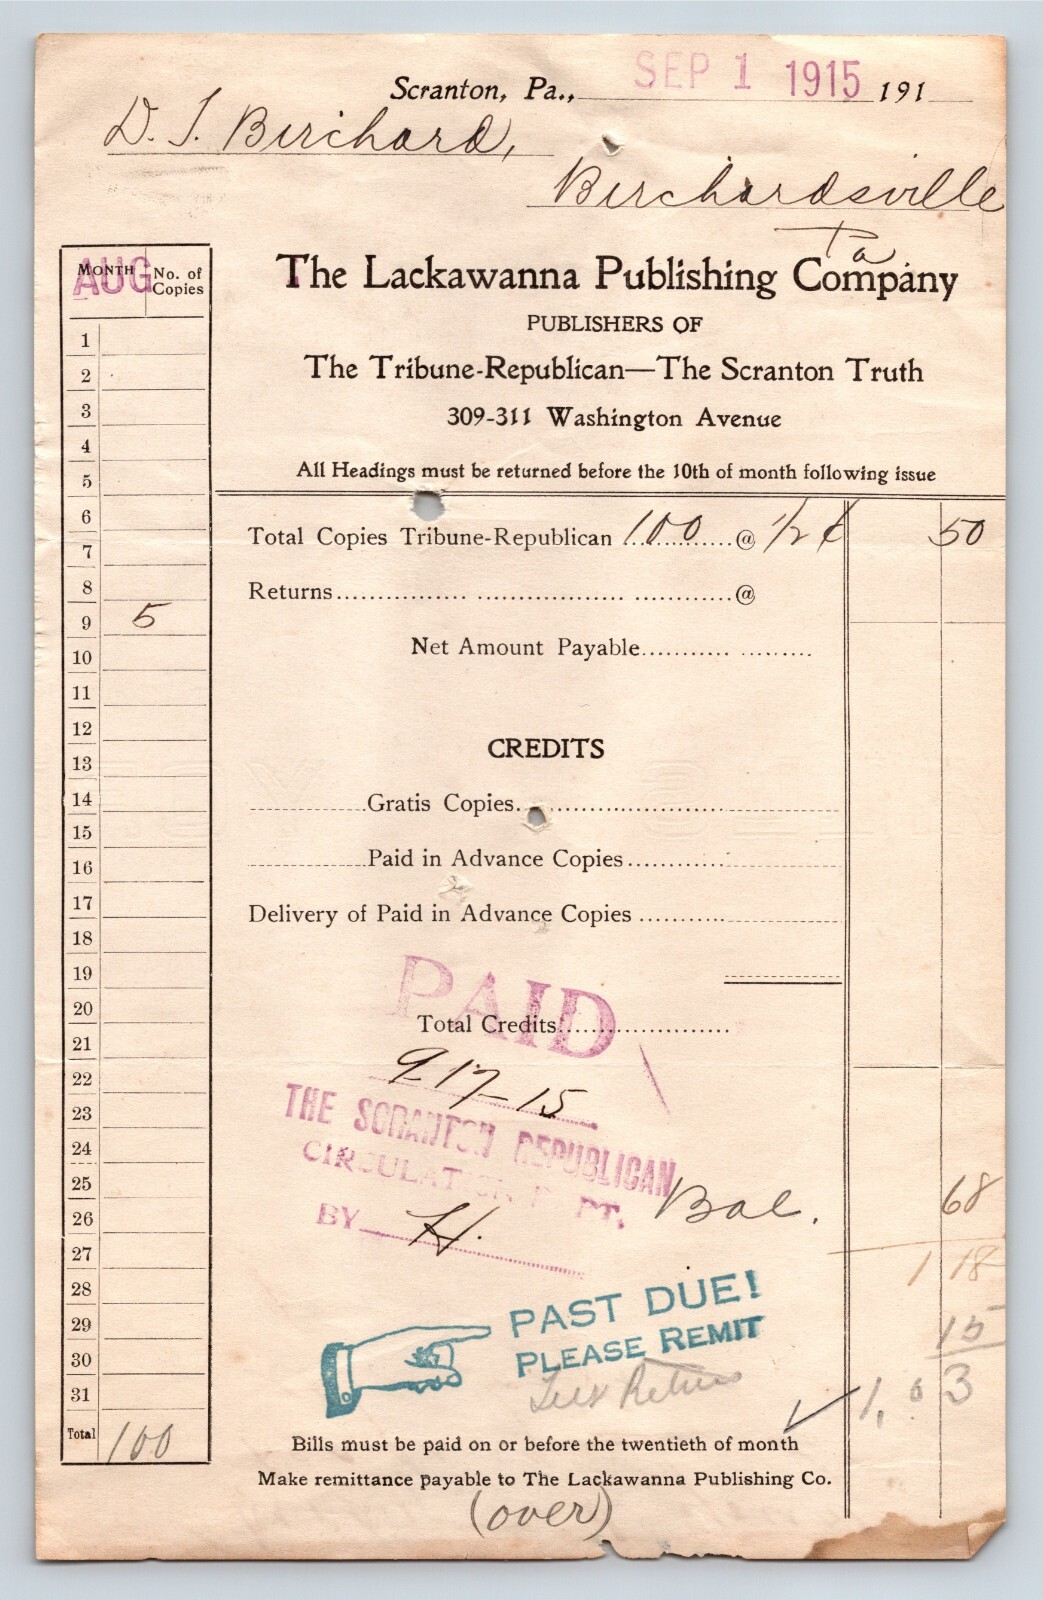 Scranton, Pa., SEP 1 1915 191
D. T. Birchard,
Birchardsville
Pa
MONTH AUG No. of Copies
The Lackawanna Publishing Company
PUBLISHERS OF
The Tribune-Republican—The Scranton Truth
309-311 Washington Avenue
All Headings must be returned before the 10th of month following issue
1
2
3
4
5
6
7
8
9 5
10
11
12
13
14
15
16
17
18
19
20
21
22
23
24
25
26
27
28
29
30
31
Total 100
Total Copies Tribune-Republican 100 @ 1/2 ¢ 50
Returns @
Net Amount Payable
CREDITS
Gratis Copies
Paid in Advance Copies
Delivery of Paid in Advance Copies
PAID
Total Credits
9-17-15
THE SCRANTON REPUBLICAN
CIRCULATION DEPT.
BY H.
Bal. 68
1 18
15
PAST DUE!
PLEASE REMIT
Less Returns
1.03
Bills must be paid on or before the twentieth of month
Make remittance payable to The Lackawanna Publishing Co.
(over)